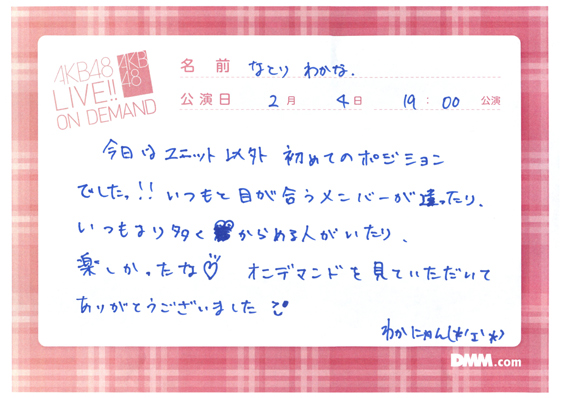 AKB48
LIVE!!
ON DEMAND
AKB
48
名前 なとり わかな.
公演日 2月 4日 19:00 公演
今日は ユニット以外 初めてのポジション
でしたっ!! いつもと目が合うメンバーが違ったり、
いつもより多く からめる人がいたり、
楽しかったな♡ オンデマンドを見ていただいて
ありがとうございました
わかにゃん(*'ェ'*)
DMM.com